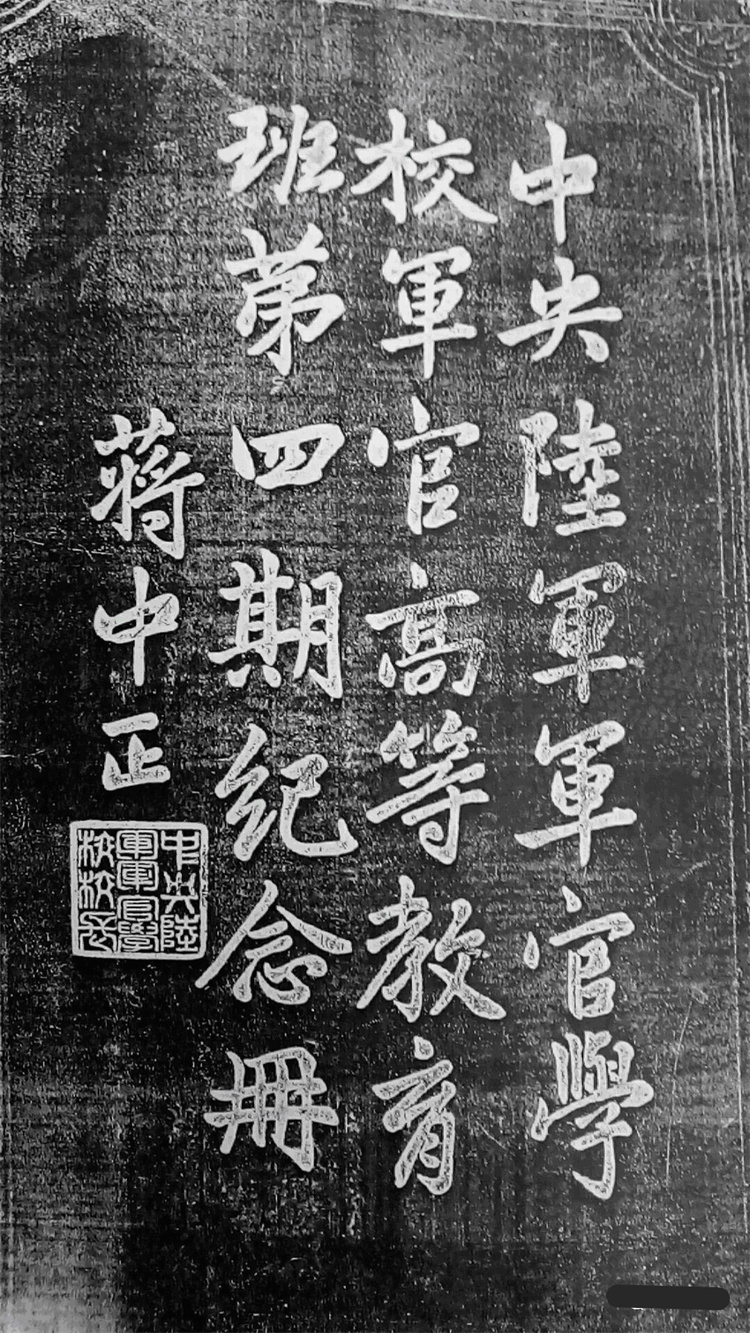 中央陸軍軍官學
校軍官高等教育
班苐四期紀念冊
蔣中正
中央陸
軍軍官學
校校長